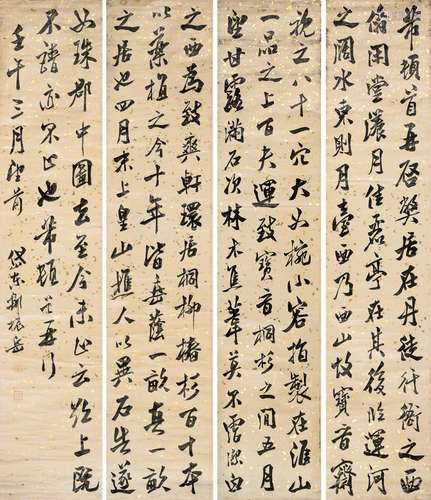 芾頓首再啓弊居在丹徒行衙之西
翛閑堂漾月佳麗亭在其後臨運河
之闊水東則月臺西乃西山故寶晉齋
視之八十一穴大如椀小容指製在淮山
一品之上百夫運致寶晉桐杉之間五月
望甘露滿石次林木焦葦莫不霑潔白
之西為致爽軒環居桐柳椿杉百十本
以藥植之今十年皆垂蔭一畝真一畝
之居也四月末上皇山樵人以異石告遂
如珠郡中圖去至今未止云欲上既
不請亦不止也芾頓首再拜
壬午三月望前
岱東劉振岳